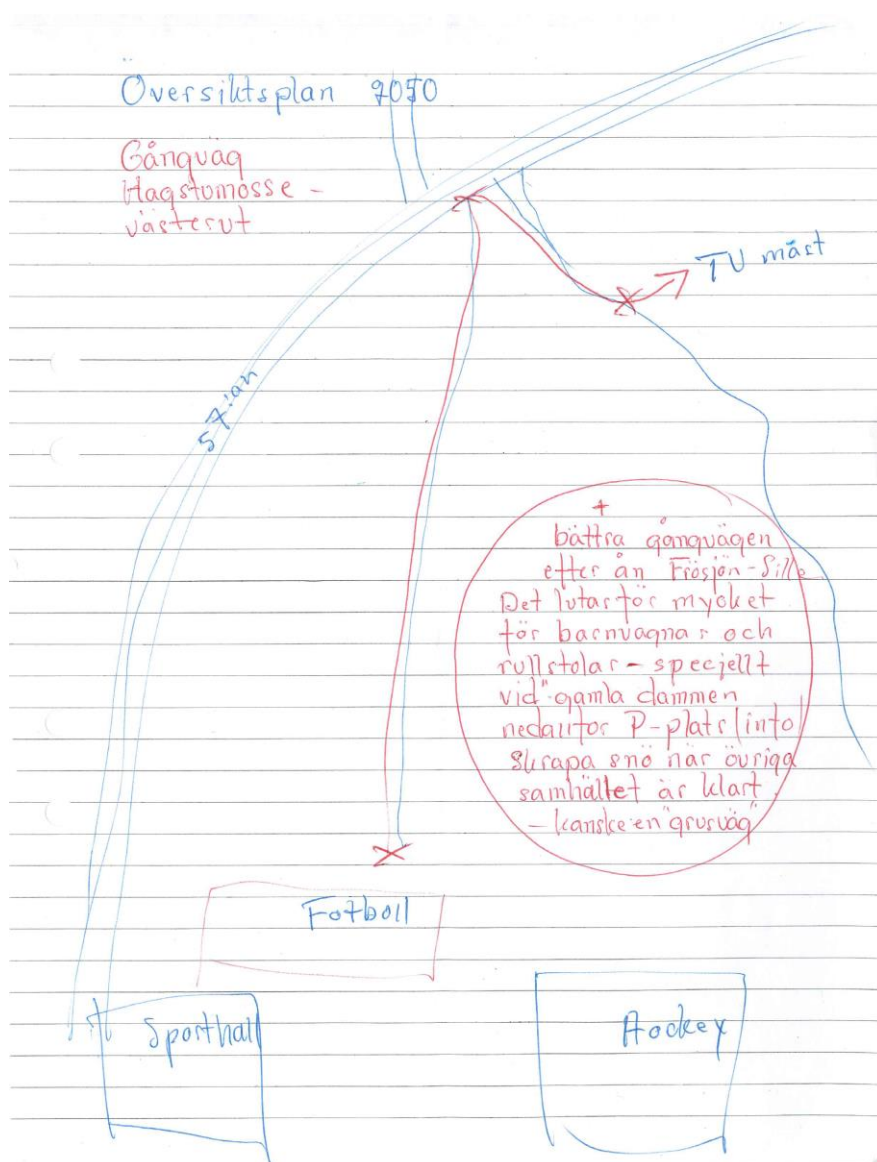 Översiktsplan 2050
Gångväg
Hagstumosse -
västerut
TU mast
57:an
+
bättra gångvägen
efter ån Frösjön-Sille
Det lutar för mycket
för barnvagnar och
rullstolar - speciellt
vid "gamla dammen
nedanför P-plats/info
skrapa snö när övriga
samhället är klart.
- kanske en "grusväg"
Fotboll
Sporthall
Hockey